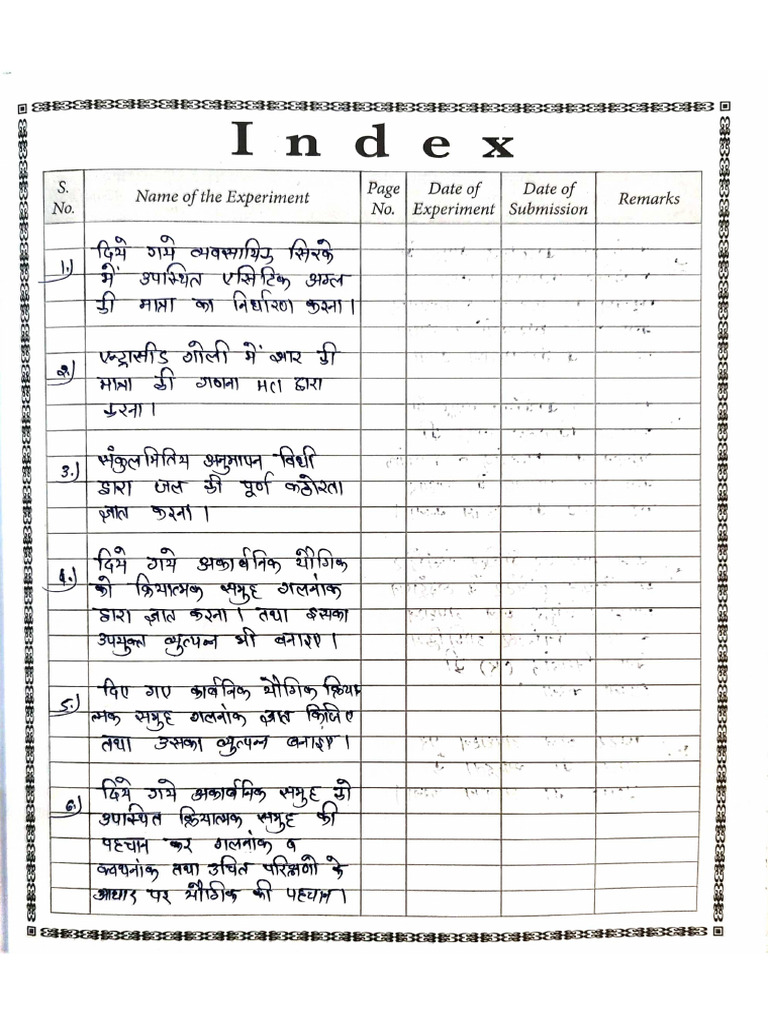 Index
S. No. Name of the Experiment Page No. Date of Experiment Date of Submission Remarks
1.) दिये गये व्यवसायिक सिरके
में उपस्थित एसिटिक अम्ल
की मात्रा का निर्धारण करना।
2.) एन्ट्रासीड गोली में क्षार की
मात्रा की गणना द्वारा
करना।
3.) संकुलमितिय अनुमापन विधी
द्वारा जल की पूर्ण कठोरता
ज्ञात करना।
4.) दिये गये अकार्बनिक यौगिक
को क्रियात्मक समुह गलनांक
द्वारा ज्ञात करना। तथा इसका
उपयुक्त व्युत्पन्न भी बनाइए।
5.) दिए गए कार्बनिक यौगिक क्रिया
त्मक समुह गलनांक ज्ञात किजिए
तथा उसका व्युत्पन्न बनाइए।
6.) दिये गये अकार्बनिक समुह की
उपास्थित क्रियात्मक समुह की
पहचान कर गलनांक व
क्वथनांक तथा उचित परिक्षणो के
आधार पर यौगिक की पहचान।